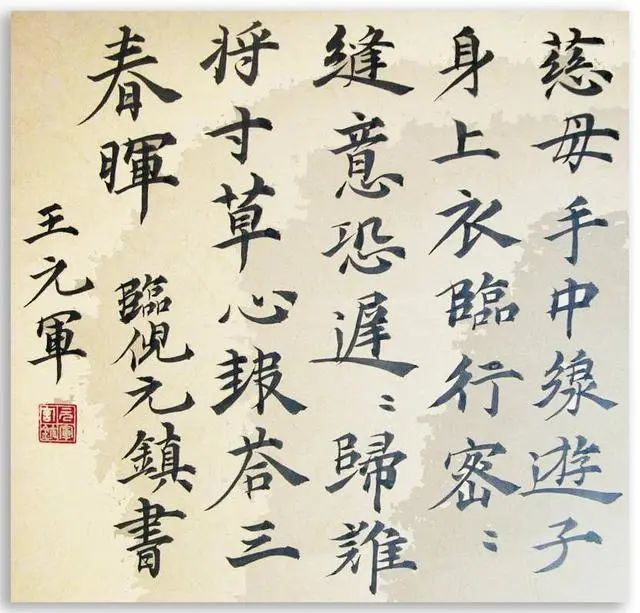 慈母手中線遊子
身上衣臨行密〻
縫意恐遲〻歸誰
将寸草心報荅三
春暉
臨倪元鎮書
王元軍